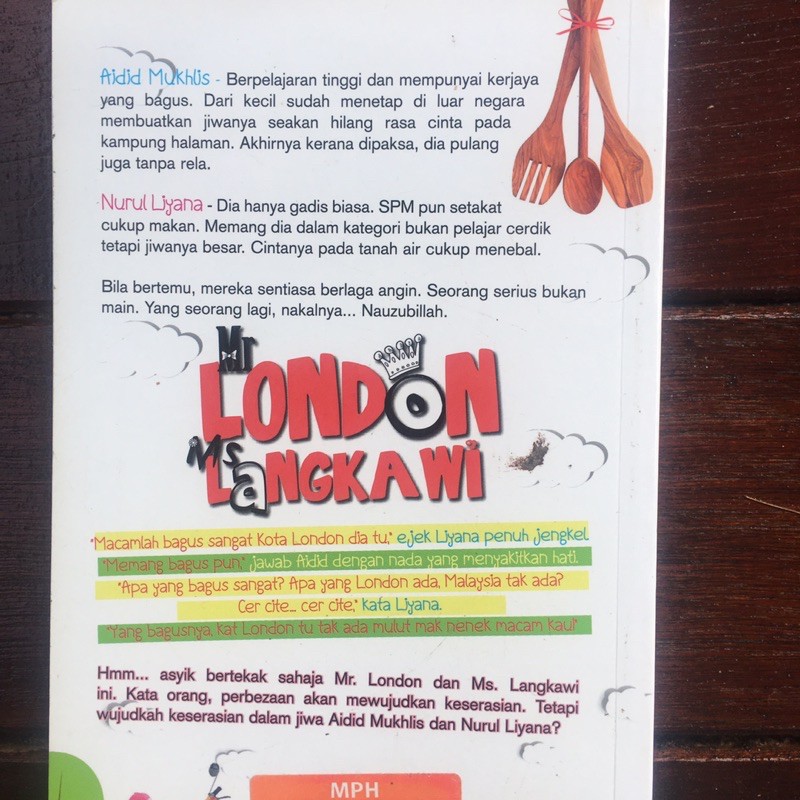 Aidid Mukhlis - Berpelajaran tinggi dan mempunyai kerjaya
yang bagus. Dari kecil sudah menetap di luar negara
membuatkan jiwanya seakan hilang rasa cinta pada
kampung halaman. Akhirnya kerana dipaksa, dia pulang
juga tanpa rela.
Nurul Liyana - Dia hanya gadis biasa. SPM pun setakat
cukup makan. Memang dia dalam kategori bukan pelajar cerdik
tetapi jiwanya besar. Cintanya pada tanah air cukup menebal.
Bila bertemu, mereka sentiasa berlaga angin. Seorang serius bukan
main. Yang seorang lagi, nakalnya... Nauzubillah.
Mr
LONDON
Ms
LaNGKAWi
"Macamlah bagus sangat Kota London dia tu," ejek Liyana penuh jengkel.
"Memang bagus pun," jawab Aidid dengan nada yang menyakitkan hati.
"Apa yang bagus sangat? Apa yang London ada, Malaysia tak ada?
Cer cite... cer cite," kata Liyana.
"Yang bagusnya, kat London tu tak ada mulut mak nenek macam kau!"
Hmm... asyik bertekak sahaja Mr. London dan Ms. Langkawi
ini. Kata orang, perbezaan akan mewujudkan keserasian. Tetapi
wujudkah keserasian dalam jiwa Aidid Mukhlis dan Nurul Liyana?
MPH